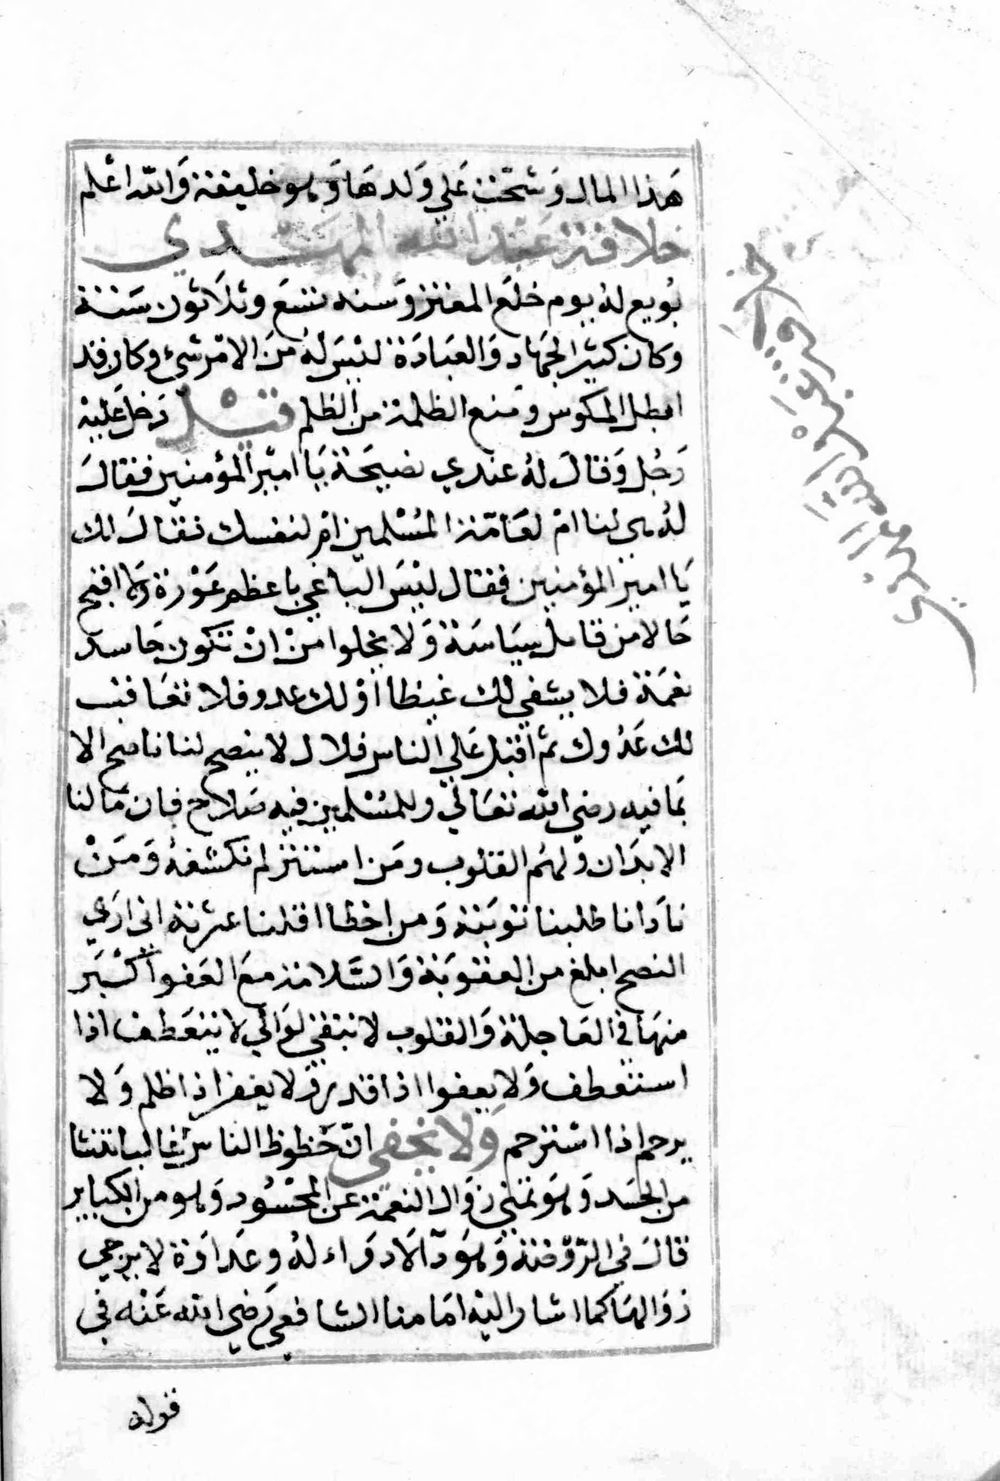 هذا المال وشحت علي ولدها وهو خليفة والله اعلم
خلافة عبد الله المهتدي
بويع له يوم خلع المعتز وسنه تسع وثلاثون سنة
وكان كثير الجهاد والعبادة ليس له من الامر شئ وكان قد
ابطل المكوس ومنع الظلمة من الظلم قيل دخل عليه
رجل وقال له عندي نصيحة يا امير المؤمنين فقال
له هي لنا ام لعامة المسلمين ام لنفسك فقال لك
يا امير المؤمنين فقال ليس الباغي باعظم عورة ولا اقبح
حالا من قابل سياسة ولا يخلوا من ان تكون حاسد
نعمة فلا يشفي لك غيظا او لك عدو فلا نعاقب
لك عدوك ثم اقبل علي الناس فلال لا ينصح لنا ناصح الا
بما فيه رضي الله تعالي وللمسلمين فيه صلاح فان مالنا
الابدان ولهم القلوب ومن استتر لم نكشفه ومن
نادانا طلبنا توبته ومن اخطا اقلنا عثرته اني اري
النصح ابلغ من العقوبة والسلامة مع العفو اكثر
منها في العاجلة والقلوب لا تبقي لوالي لا ينعطف اذا
استعطف ولا يعفوا اذا قدر ولا يغفر اذا ظلم ولا
يرحم اذا استرحم ولا يخفي ان حظوظ الناس غالبا تنشا
من الحسد وهو تمني زوال النعمة عن المحسود وهو من الكباير
قال في الروضة وهو دآ لا دواء له وعداوة لا يرجي
زوالها كما اشار اليه امامنا الشافعي رضي الله عنه في
قوله